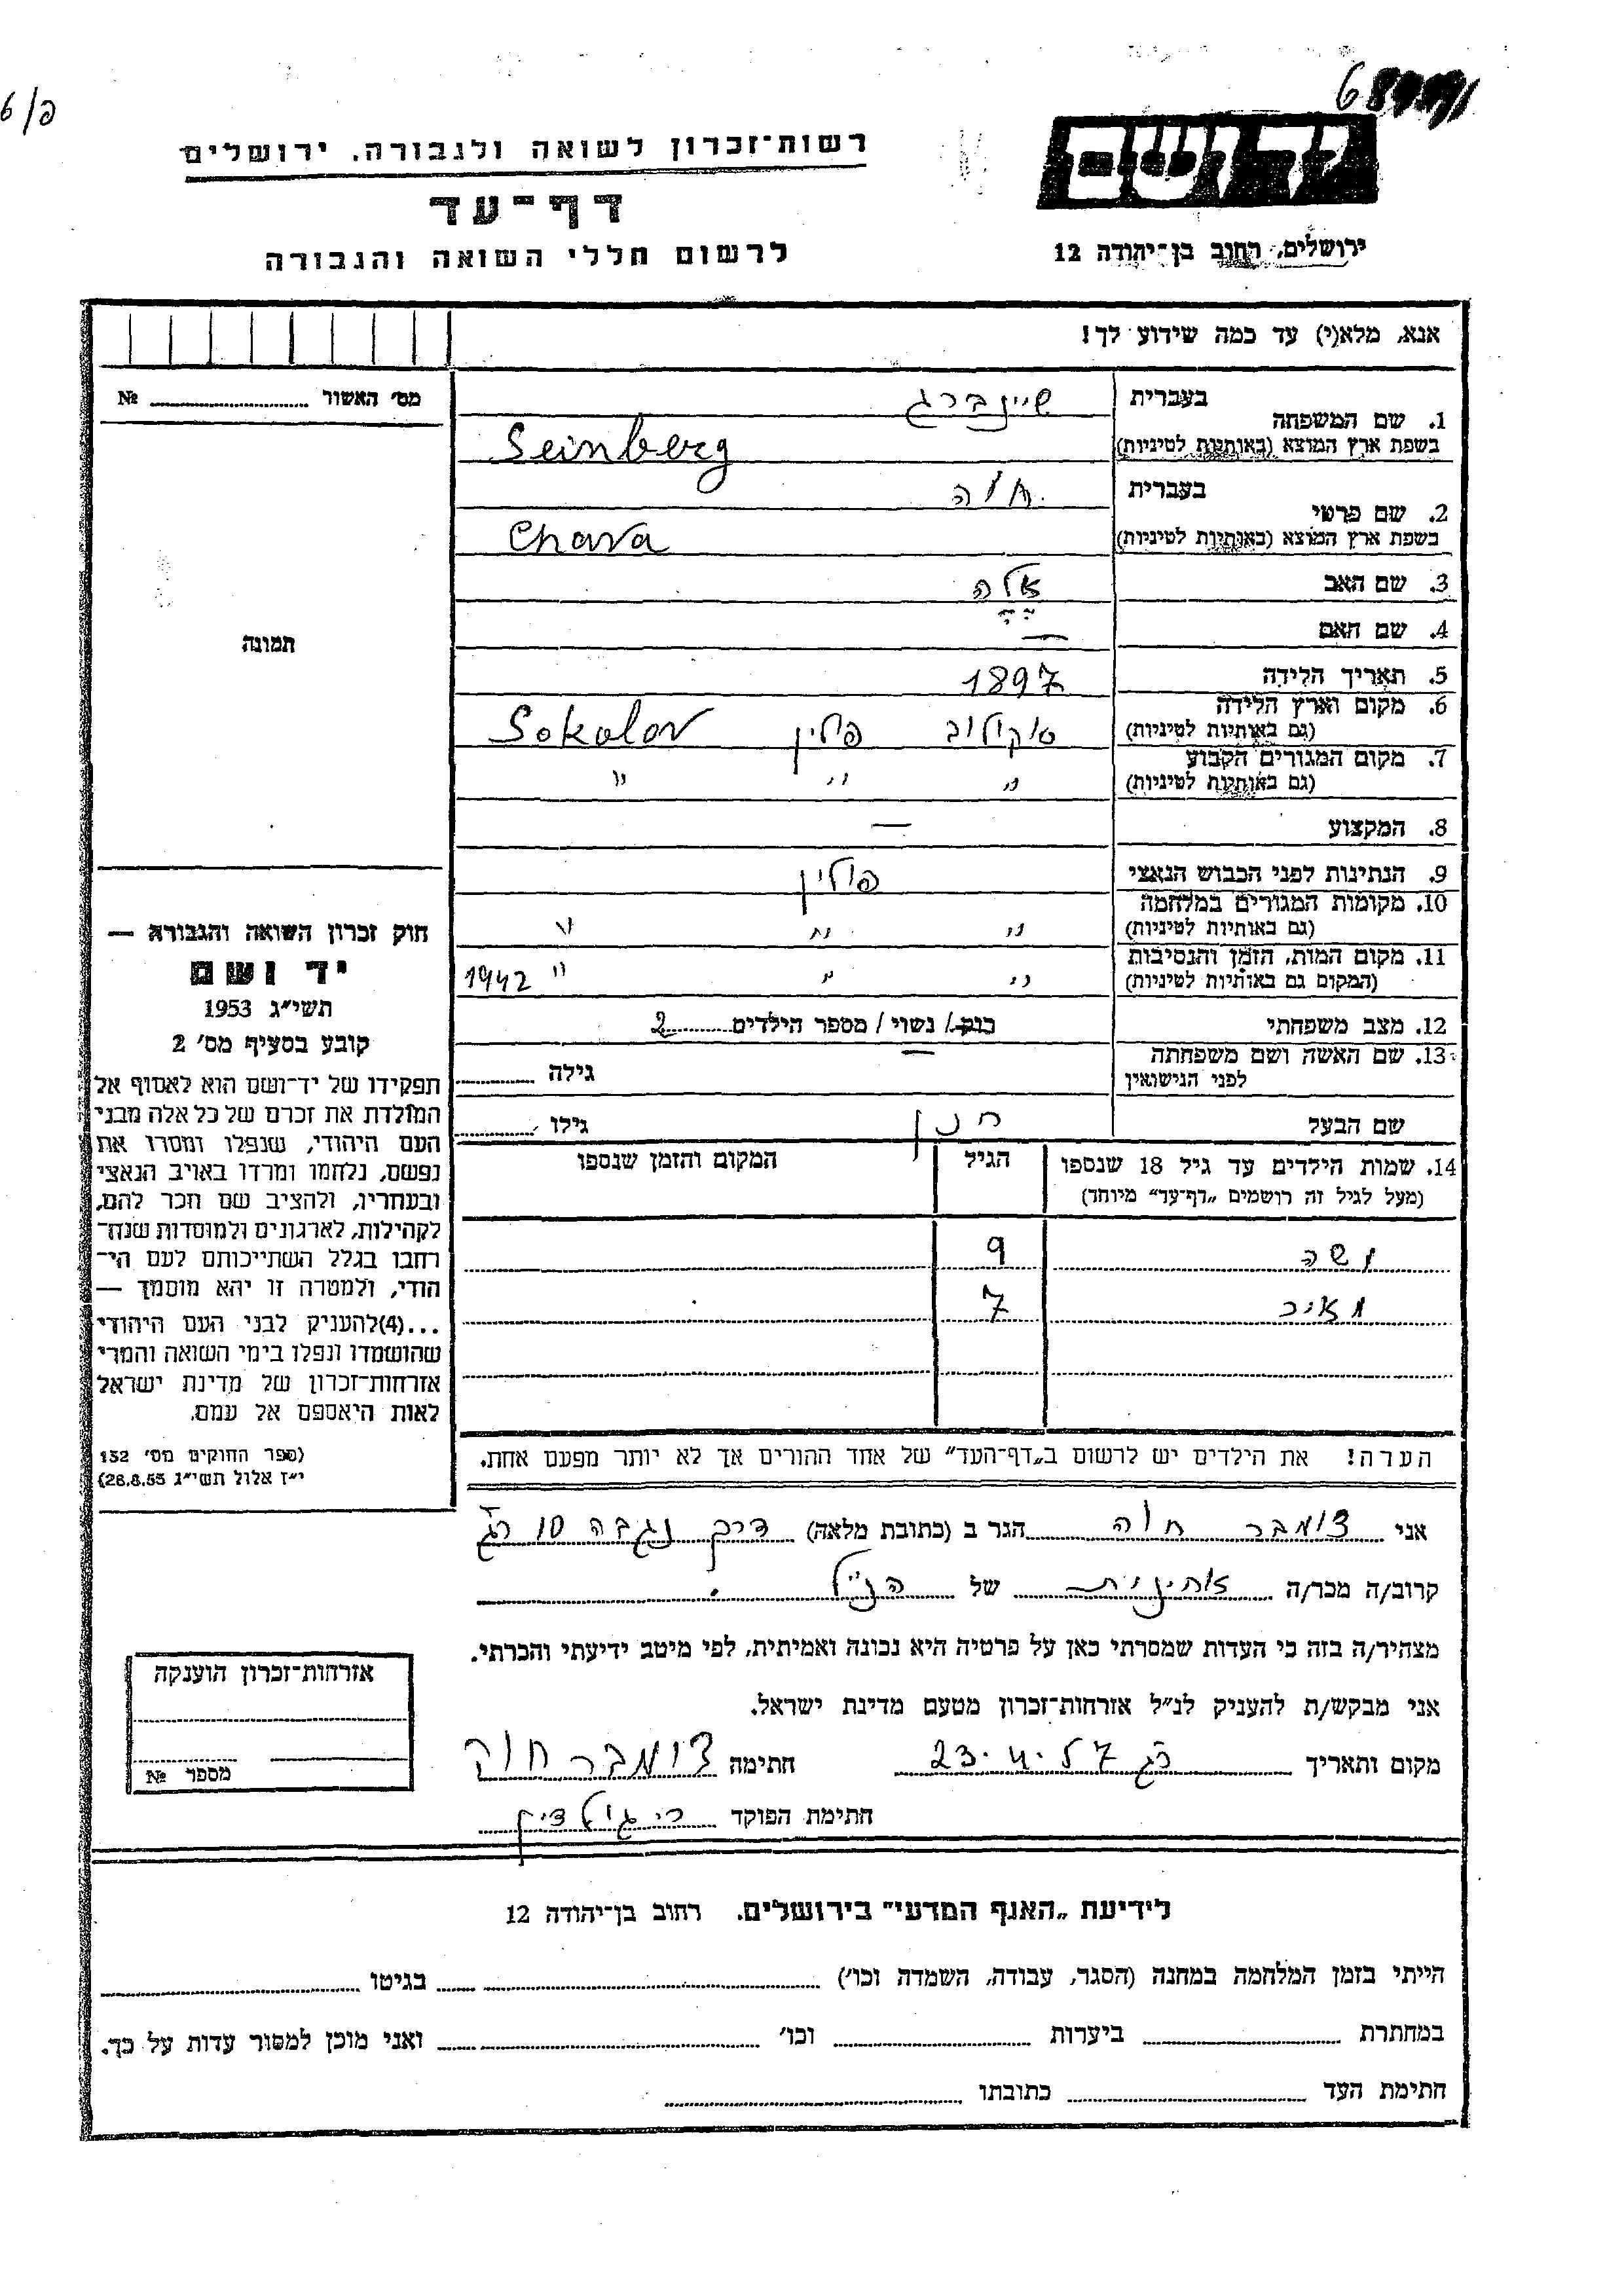 6/פ
רשות־זכרון לשואה ולגבורה, ירושלים
דף־עד
לרשום חללי השואה והגבורה
יד ושם
ירושלים, רחוב בן־יהודה 12
אנא, מלא(י) עד כמה שידוע לך!
מס׳ האשור № 
1. שם המשפחה בעברית שיינברג
בשפת ארץ המוצא (באותיות לטיניות) Seinberg
2. שם פרטי בעברית חוה
בשפת ארץ המוצא (באותיות לטיניות) Chava
3. שם האב אלה
4. שם האם —
5. תאריך הלידה 1897
6. מקום וארץ הלידה (גם באותיות לטיניות) סוקולוב פולין Sokolov
7. מקום המגורים הקבוע (גם באותיות לטיניות) " " "
8. המקצוע —
9. הנתינות לפני הכבוש הנאצי פולין
10. מקומות המגורים במלחמה (גם באותיות לטיניות) " " "
11. מקום המות, הזמן והנסיבות (המקום גם באותיות לטיניות) " " " 1942
12. מצב משפחתי רווק/ נשוי/ מספר הילדים 2
13. שם האשה ושם משפחתה לפני הנישואין — גילה
שם הבעל חנן גילו
14. שמות הילדים עד גיל 18 שנספו (מעל לגיל זה רושמים „דף־עד” מיוחד) הגיל המקום והזמן שנספו
9
7
הערה! את הילדים יש לרשום ב„דף־העד” של אחד ההורים אך לא יותר מפעם אחת.
תמונה
חוק זכרון השואה והגבורה —
יד ושם
תשי״ג 1953
קובע בסעיף מס׳ 2
תפקידו של יד־ושם הוא לאסוף אל
המולדת את זכרם של כל אלה מבני
העם היהודי, שנפלו ומסרו את
נפשם, נלחמו ומרדו באויב הנאצי
ובעוזריו, ולהציב שם וזכר להם,
לקהילות, לארגונים ולמוסדות שנח־
רבו בגלל השתייכותם לעם הי־
הודי, ולמטרה זו יהא מוסמך —
...(4)להעניק לבני העם היהודי
שהושמדו ונפלו בימי השואה והמרי
אזרחות־זכרון של מדינת ישראל
לאות היאספם אל עמם.
(ספר החוקים מס׳ 132
י״ז אלול תשי״ג 28.8.53)
אני צומבר חוה הגר ב (כתובת מלאה) דרך נגבה 10 רג
קרוב/ה מכר/ה אחינית של הנ״ל
מצהיר/ה בזה כי העדות שמסרתי כאן על פרטיה היא נכונה ואמיתית, לפי מיטב ידיעתי והכרתי.
אני מבקש/ת להעניק לנ״ל אזרחות־זכרון מטעם מדינת ישראל.
מקום ותאריך רג 23.4.57 חתימה צומבר חוה
חתימת הפוקד
אזרחות־זכרון הוענקה
מספר №
לידיעת „האגף המדעי” בירושלים, רחוב בן־יהודה 12
הייתי בזמן המלחמה במחנה (הסגר, עבודה, השמדה וכו׳) בגיטו
במחתרת ביערות וכו׳ ואני מוכן למסור עדות על כך.
חתימת העד כתובתו